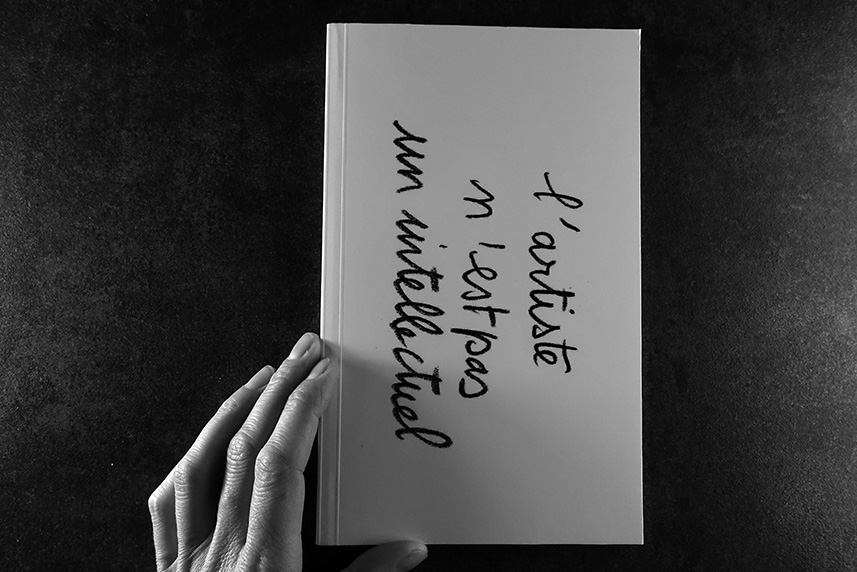 l'artiste
n'est pas
un intellectuel